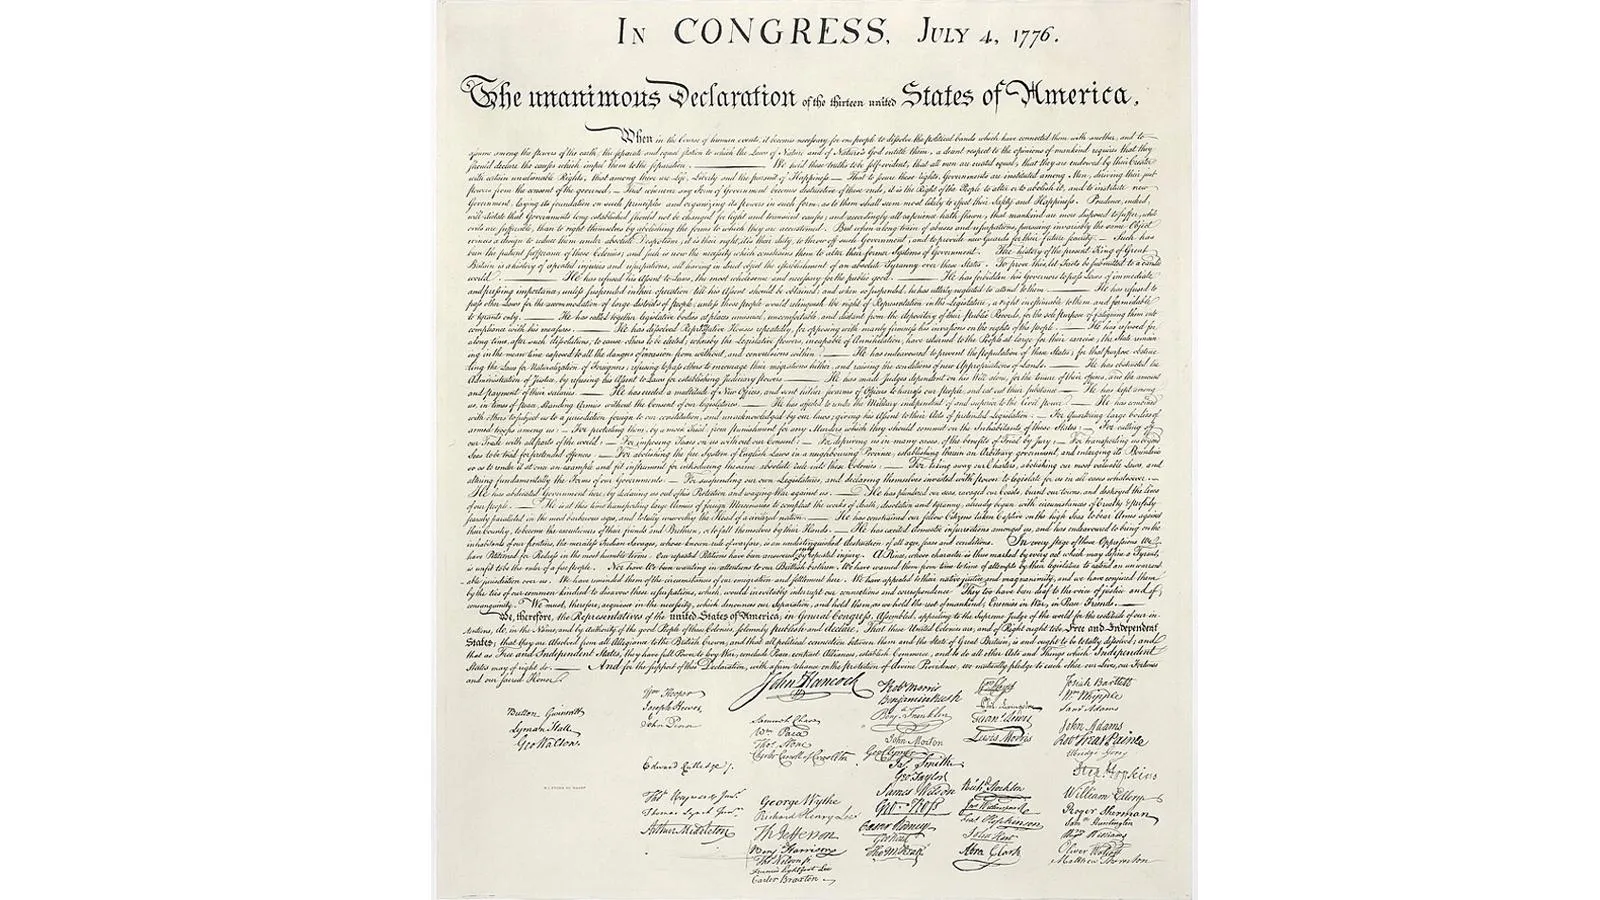 In CONGRESS, July 4, 1776.
The unanimous Declaration of the thirteen united States of America,
When in the Course of human events, it becomes necessary for one people to dissolve the political bands which have connected them with another, and to
assume among the powers of the earth, the separate and equal station to which the Laws of Nature and of Nature's God entitle them, a decent respect to the opinions of mankind requires that they
should declare the causes which impel them to the separation. — We hold these truths to be self-evident, that all men are created equal, that they are endowed by their Creator
with certain unalienable Rights, that among these are Life, Liberty and the pursuit of Happiness — That to secure these rights, Governments are instituted among Men, deriving their just
powers from the consent of the governed, — That whenever any Form of Government becomes destructive of these ends, it is the Right of the People to alter or to abolish it, and to institute new
Government, laying its foundation on such principles and organizing its powers in such form, as to them shall seem most likely to effect their Safety and Happiness. Prudence, indeed,
will dictate that Governments long established should not be changed for light and transient causes; and accordingly all experience hath shewn, that mankind are more disposed to suffer, while
evils are sufferable, than to right themselves by abolishing the forms to which they are accustomed. But when a long train of abuses and usurpations, pursuing invariably the same Object
evinces a design to reduce them under absolute Despotism, it is their right, it is their duty, to throw off such Government, and to provide new Guards for their future security. — Such has
been the patient sufferance of these Colonies; and such is now the necessity which constrains them to alter their former Systems of Government. The history of the present King of Great
Britain is a history of repeated injuries and usurpations, all having in direct object the establishment of an absolute Tyranny over these States. To prove this, let Facts be submitted to a candid
world. — He has refused his Assent to Laws, the most wholesome and necessary for the public good. — He has forbidden his Governors to pass Laws of immediate
and pressing importance, unless suspended in their operation till his Assent should be obtained; and when so suspended, he has utterly neglected to attend to them. — He has refused to
pass other Laws for the accommodation of large districts of people, unless those people would relinquish the right of Representation in the Legislature, a right inestimable to them and formidable
to tyrants only. — He has called together legislative bodies at places unusual, uncomfortable, and distant from the depository of their public Records, for the sole purpose of fatiguing them into
compliance with his measures. — He has dissolved Representative Houses repeatedly, for opposing with manly firmness his invasions on the rights of the people. — He has refused for
a long time, after such dissolutions, to cause others to be elected; whereby the Legislative powers, incapable of Annihilation, have returned to the People at large for their exercise; the State remain
ing in the mean time exposed to all the dangers of invasion from without, and convulsions within. — He has endeavoured to prevent the population of these States; for that purpose obstruc
ting the Laws for Naturalization of Foreigners; refusing to pass others to encourage their migrations hither, and raising the conditions of new Appropriations of Lands. — He has obstructed the
Administration of Justice, by refusing his Assent to Laws for establishing Judiciary powers — He has made Judges dependent on his Will alone, for the tenure of their offices, and the amount
and payment of their salaries. — He has erected a multitude of New Offices, and sent hither swarms of Officers to harrass our people, and eat out their substance. — He has kept among
us, in times of peace, Standing Armies without the Consent of our legislatures. — He has affected to render the Military independent of and superior to the Civil power. — He has combined
with others to subject us to a jurisdiction foreign to our constitution, and unacknowledged by our laws; giving his Assent to their Acts of pretended Legislation: — For Quartering large bodies of
armed troops among us: — For protecting them, by a mock Trial, from punishment for any Murders which they should commit on the Inhabitants of these States: — For cutting off
our Trade with all parts of the world: — For imposing Taxes on us without our Consent: — For depriving us in many cases, of the benefits of Trial by Jury: — For transporting us beyond
Seas to be tried for pretended offences — For abolishing the free System of English Laws in a neighbouring Province, establishing therein an Arbitrary government, and enlarging its Boundaries
so as to render it at once an example and fit instrument for introducing the same absolute rule into these Colonies: — For taking away our Charters, abolishing our most valuable Laws, and
altering fundamentally the Forms of our Governments: — For suspending our own Legislatures, and declaring themselves invested with power to legislate for us in all cases whatsoever. —
He has abdicated Government here, by declaring us out of his Protection and waging War against us. — He has plundered our seas, ravaged our Coasts, burnt our towns, and destroyed the lives
of our people. — He is at this time transporting large Armies of foreign Mercenaries to compleat the works of death, desolation and tyranny, already begun with circumstances of Cruelty & perfidy
scarcely paralleled in the most barbarous ages, and totally unworthy the Head of a civilized nation. — He has constrained our fellow Citizens taken Captive on the high Seas to bear Arms against
their Country, to become the executioners of their friends and Brethren, or to fall themselves by their Hands. — He has excited domestic insurrections amongst us, and has endeavoured to bring on the
inhabitants of our frontiers, the merciless Indian Savages, whose known rule of warfare, is an undistinguished destruction of all ages, sexes and conditions. In every stage of these Oppressions We
have Petitioned for Redress in the most humble terms: Our repeated Petitions have been answered only by repeated injury. A Prince, whose character is thus marked by every act which may define a Tyrant,
is unfit to be the ruler of a free people. Nor have We been wanting in attentions to our Brittish brethren. We have warned them from time to time of attempts by their legislature to extend an unwarrant
able jurisdiction over us. We have reminded them of the circumstances of our emigration and settlement here. We have appealed to their native justice and magnanimity, and we have conjured them
by the ties of our common kindred to disavow these usurpations, which, would inevitably interrupt our connections and correspondence. They too have been deaf to the voice of justice and of
consanguinity. We must, therefore, acquiesce in the necessity, which denounces our Separation, and hold them, as we hold the rest of mankind, Enemies in War, in Peace Friends. —
We, therefore, the Representatives of the united States of America, in General Congress, Assembled, appealing to the Supreme Judge of the world for the rectitude of our in-
tentions, do, in the Name, and by Authority of the good People of these Colonies, solemnly publish and declare, That these United Colonies are, and of Right ought to be Free and Independent
States; that they are Absolved from all Allegiance to the British Crown, and that all political connection between them and the State of Great Britain, is and ought to be totally dissolved; and
that as Free and Independent States, they have full Power to levy War, conclude Peace, contract Alliances, establish Commerce, and to do all other Acts and Things which Independent
States may of right do. — And for the support of this Declaration, with a firm reliance on the protection of divine Providence, we mutually pledge to each other our Lives, our Fortunes
and our sacred Honor.
Button Gwinnett
Lyman Hall
Geo Walton.
Wm Hooper
Joseph Hewes,
John Penn
Edward Rutledge /.
Thos Heyward Junr.
Thomas Lynch Junr.
Arthur Middleton
John Hancock
Samuel Chase
Wm Paca
Thos Stone
Charles Carroll of Carrollton
George Wythe
Richard Henry Lee
Th Jefferson
Benj Harrison
Thos Nelson jr.
Francis Lightfoot Lee
Carter Braxton
Robt Morris
Benjamin Rush
Benj. Franklin
John Morton
Geo Clymer
Jas. Smith
Geo. Taylor
James Wilson
Geo. Ross
Caesar Rodney
Geo Read
Tho M:Kean
Wm Floyd
Phil. Livingston
Frans. Lewis
Lewis Morris
Richd. Stockton
Jno Witherspoon
Fras. Hopkinson
John Hart
Abra Clark
Josiah Bartlett
Wm Whipple
Saml Adams
John Adams
Robt Treat Paine
Elbridge Gerry
Step. Hopkins
William Ellery
Roger Sherman
Saml Huntington
Wm Williams
Oliver Wolcott
Matthew Thornton